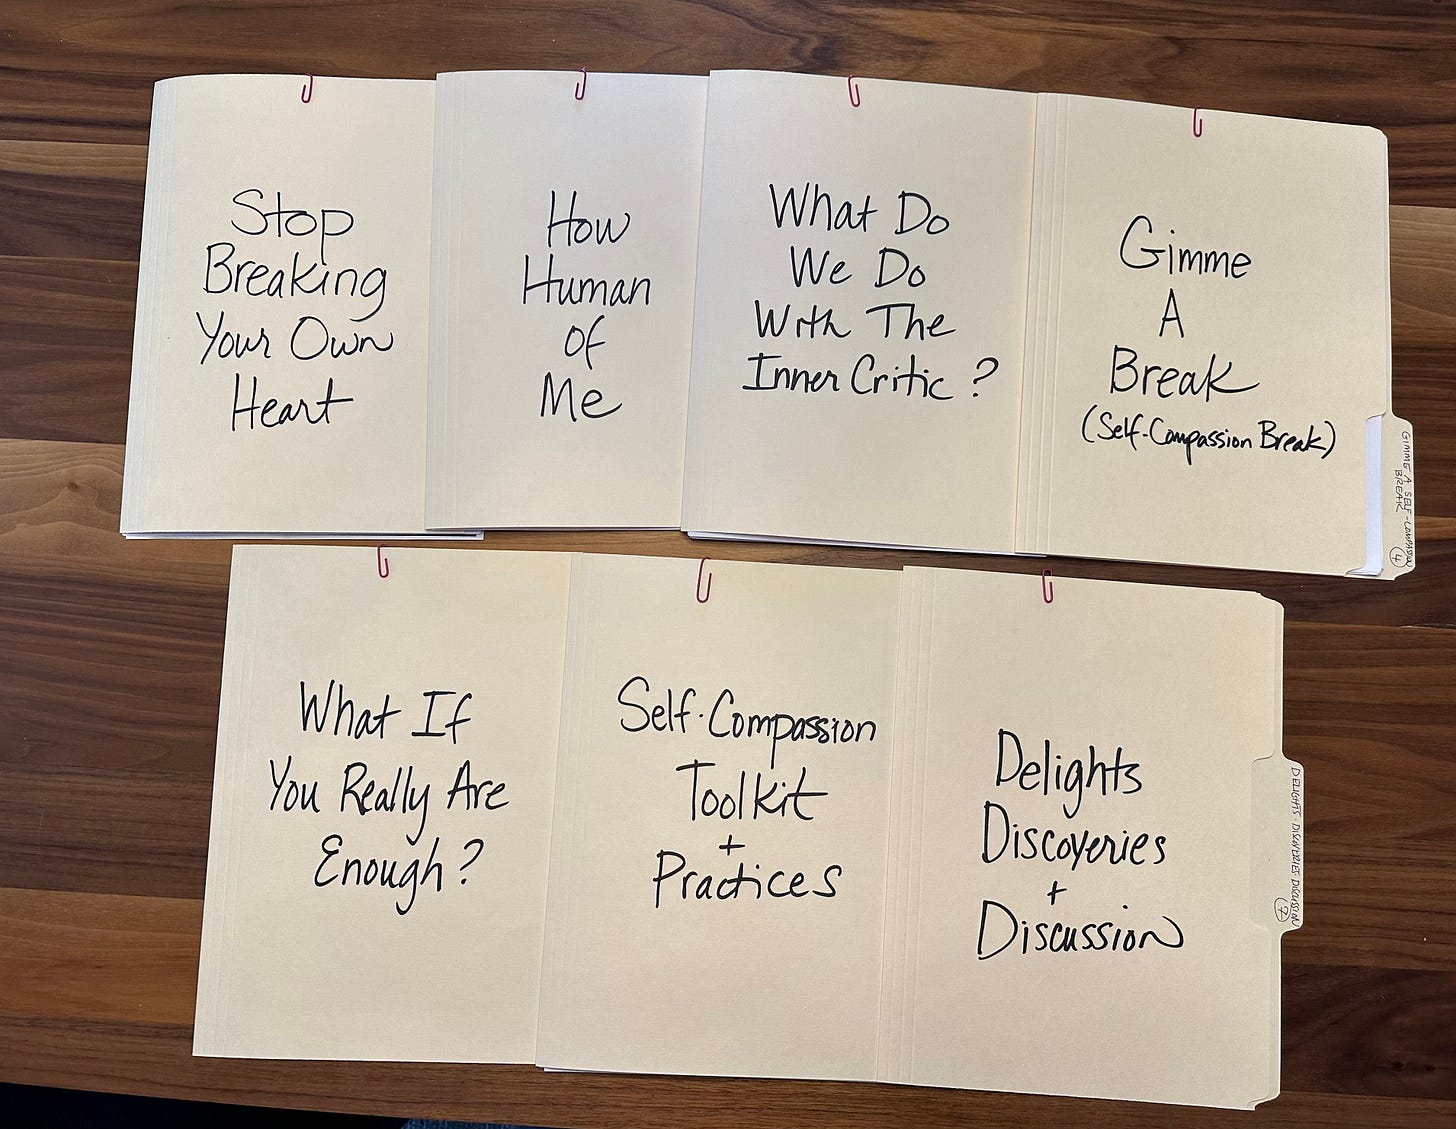 Stop
Breaking
Your Own
Heart
How
Human
of
Me
What Do
We Do
With The
Inner Critic ?
Gimme
A
Break
(Self-Compassion Break)
GIMME A SELF-COMPASSION
BREAK
4
What If
You Really Are
Enough?
Self-Compassion
Toolkit
+
Practices
Delights
Discoveries
+
Discussion
DELIGHTS · DISCOVERIES · DISCUSSION
7